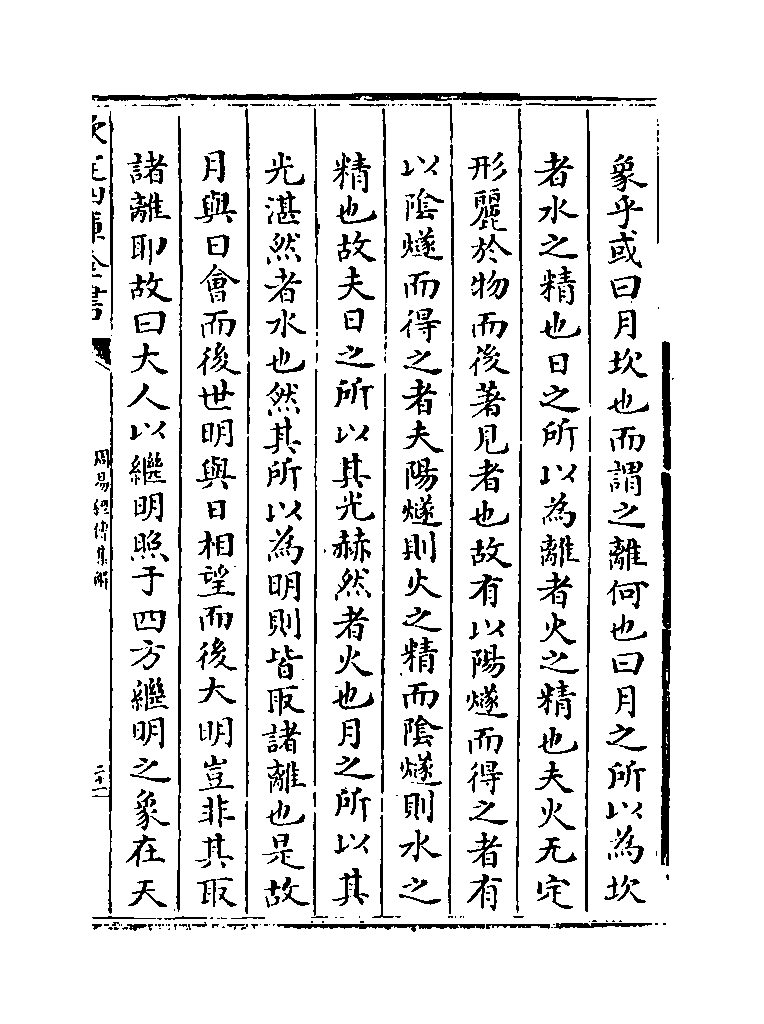 象乎或曰月坎也而謂之離何也曰月之所以為坎
者水之精也日之所以為離者火之精也夫火无定
形麗於物而後著見者也故有以陽燧而得之者有
以陰燧而得之者夫陽燧則火之精而陰燧則水之
精也故夫日之所以其光赫然者火也月之所以其
光湛然者水也然其所以為明則皆取諸離也是故
月與日會而後世明與日相望而後大明豈非其取
諸離耶故曰大人以繼明照于四方繼明之象在天
欽定四庫全書
周易經傳集解